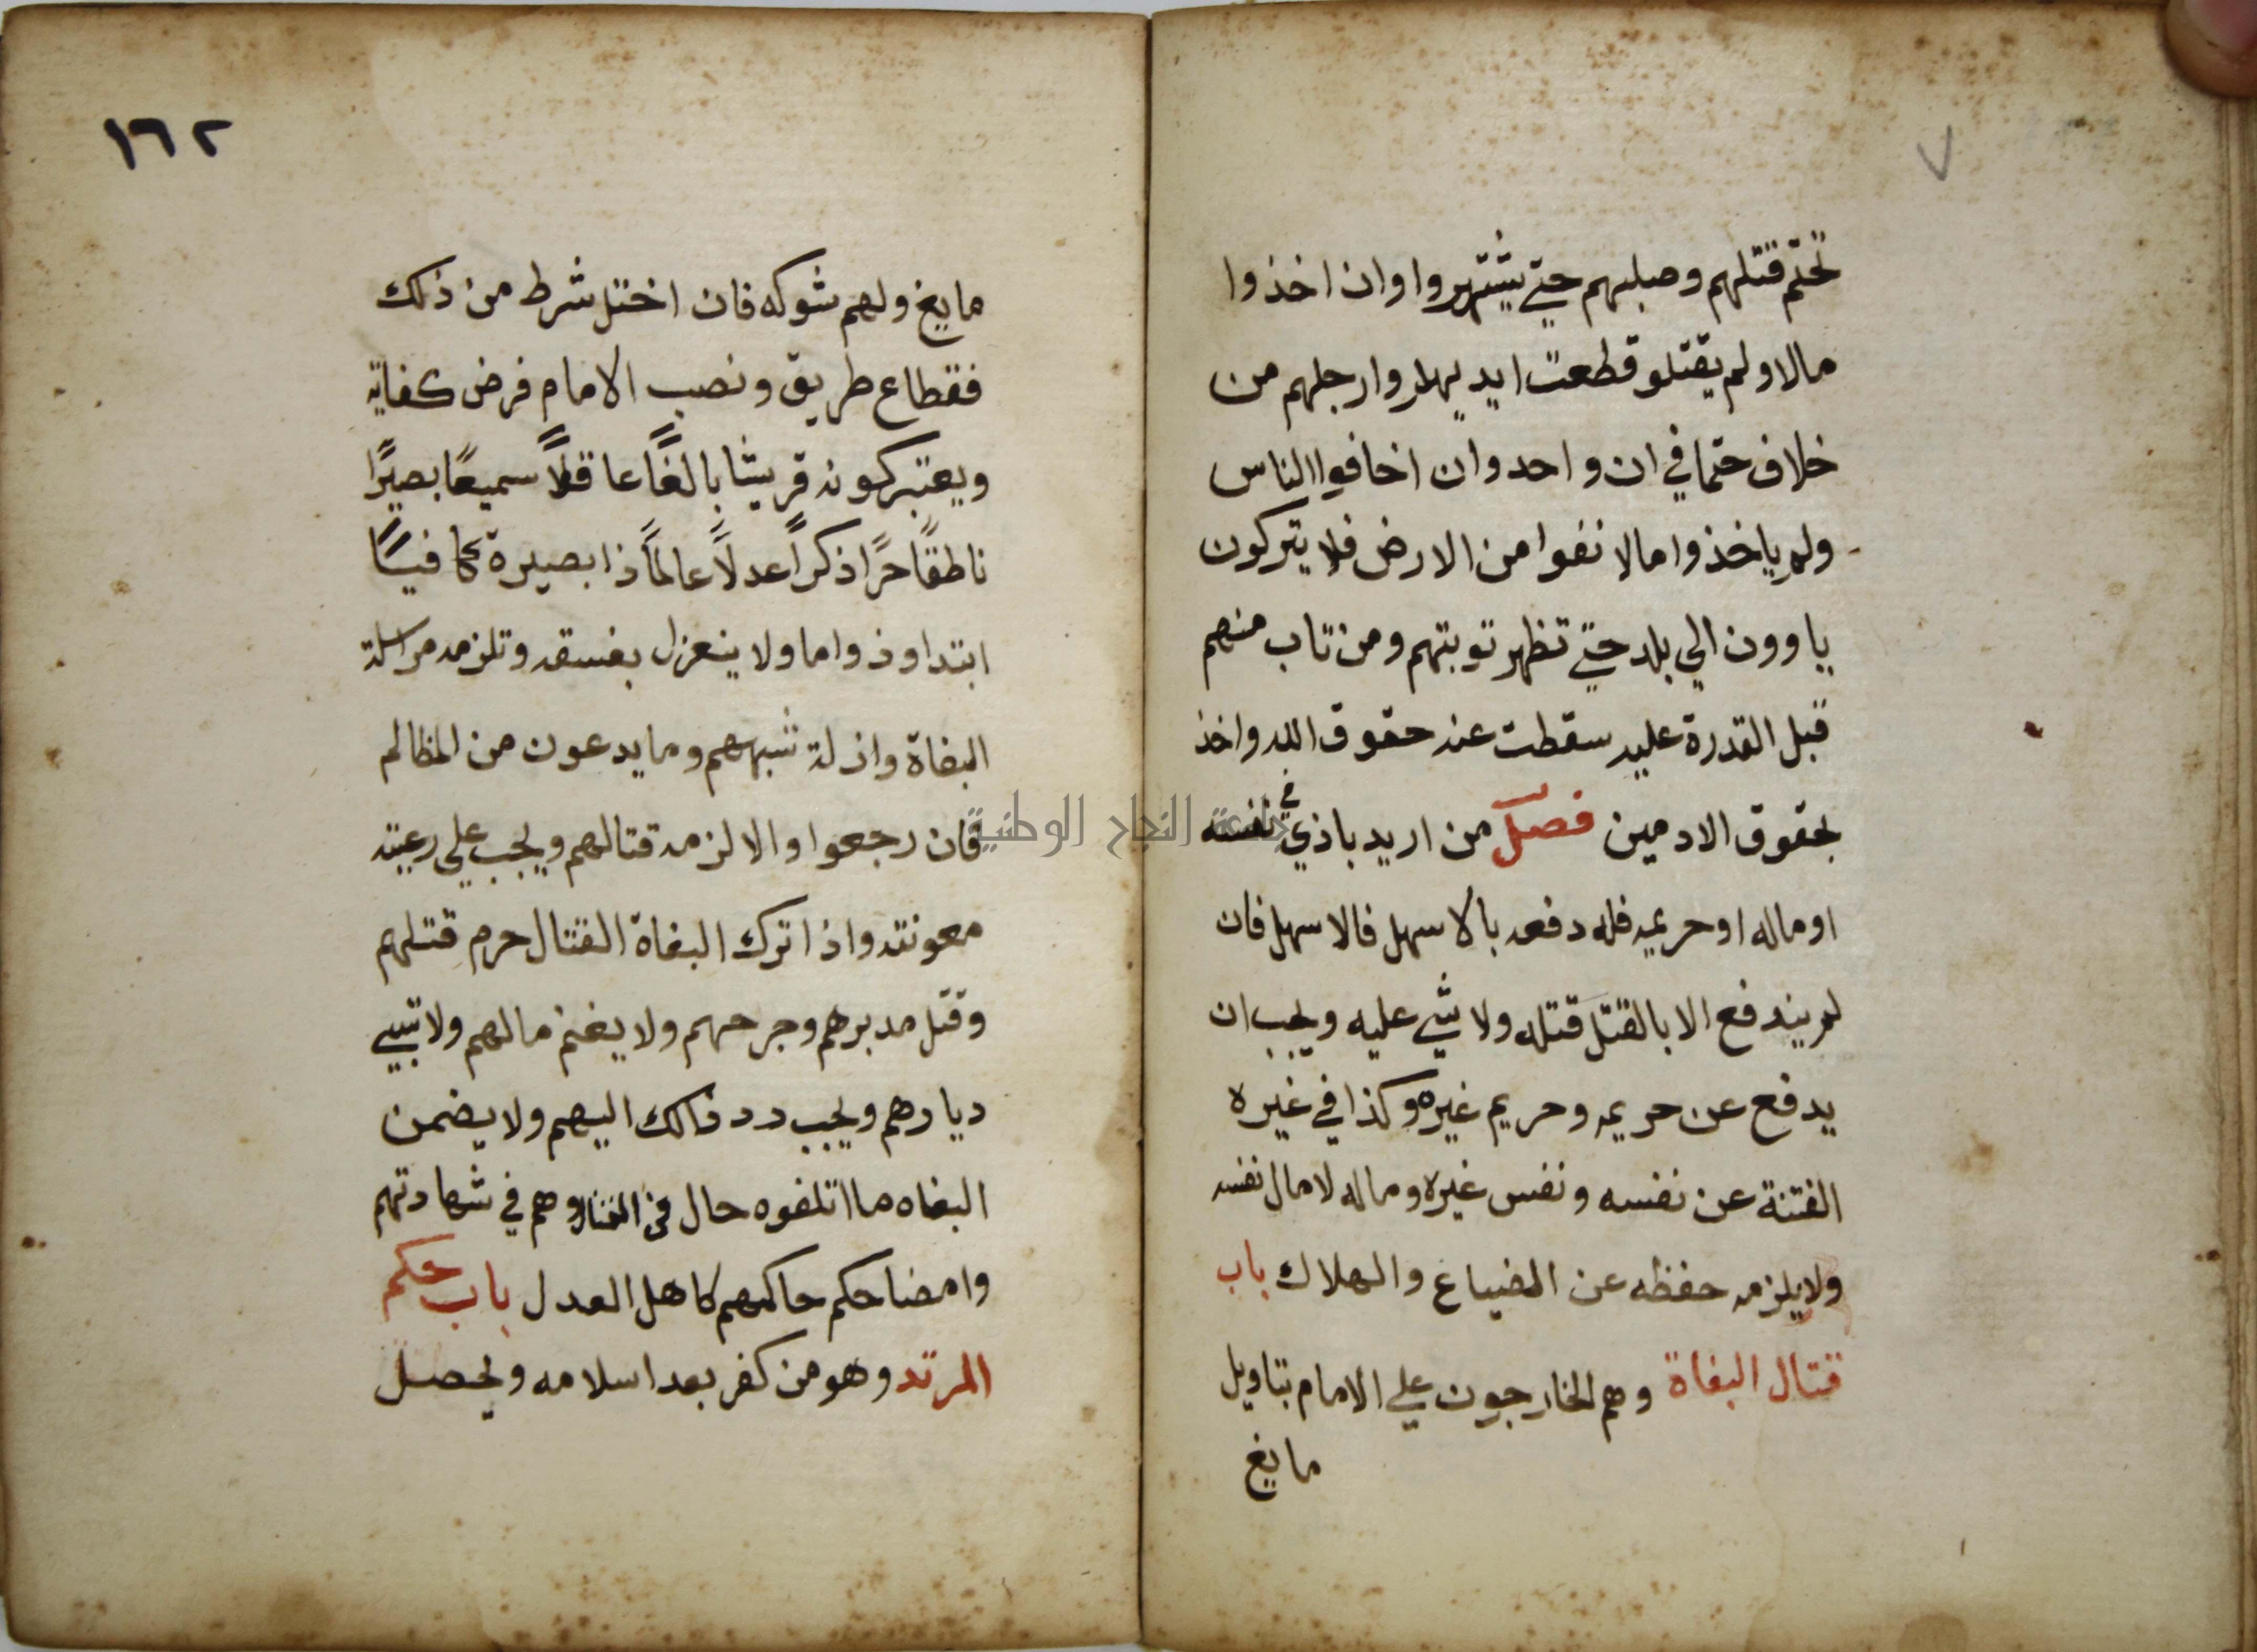 ٧
تحتم قتلهم وصلبهم حتي يشتهروا وان اخذوا
مالا ولم يقتلو قطعت ايديهم وارجلهم من
خلاف حتما في ان واحد وان اخافوا الناس
ولم ياخذوا مالا نفوا من الارض فلا يتركون
ياوون الي بلد حتي تظهر توبتهم ومن تاب منهم
قبل القدرة عليه سقطت عنه حقوق الله واخذ
بحقوق الادمين فصل من اريد باذي في نفسه
او ماله او حريمه فله دفعه بالاسهل فالاسهل فان
لم يندفع الا بالقتل قتله ولا شي عليه ويجب ان
يدفع عن حريمه وحريم غيره وكذا في غيره
الفتنة عن نفسه ونفس غيره وماله لا مال نفسه
ولا يلزمه حفظه عن الضياع والهلاك باب
قتال البغاة وهم الخارجون علي الامام بتاويل
مايغ
١٦٢
مايغ ولهم شوكه فان اختل شرط من ذلك
فقطاع طريق ونصب الامام فرض كفاية
ويعتبر كونه قريشا بالغًا عاقلاً سميعًا بصيرًا
ناطقًا حرًا ذكراً عدلاً عالماً ذا بصيرة كافيًا
ابتدا ودواما ولا ينعزل بفسقه وتلزمه مراسلة
البغاة وازلة شبههم وما يدعون من المظالم
فان رجعوا والا لزمه قتالهم ويجب علي رعيته
معونته واذا ترك البغاة القتال حرم قتلهم
وقتل مدبرهم وجرحهم ولا يغنم مالهم ولا تسبي
ديارهم ويجب رد ذالك اليهم ولا يضمن
البغاه ما اتلفوه حال وهم في شهادتهم
وامضا حكم حاكمهم كاهل العدل باب حكم
المرتد وهو من كفر بعد اسلامه ويحصل
جامعة النجاح الوطنية